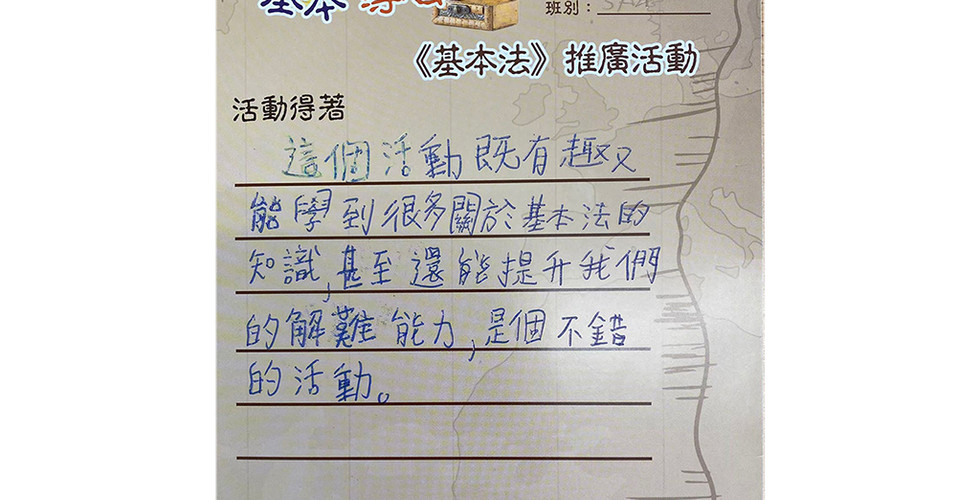 基本
班別：
《基本法》推廣活動
活動得著
這個活動既有趣又
能學到很多關於基本法的
知識,甚至還能提升我們
的解難能力,是個不錯
的活動。